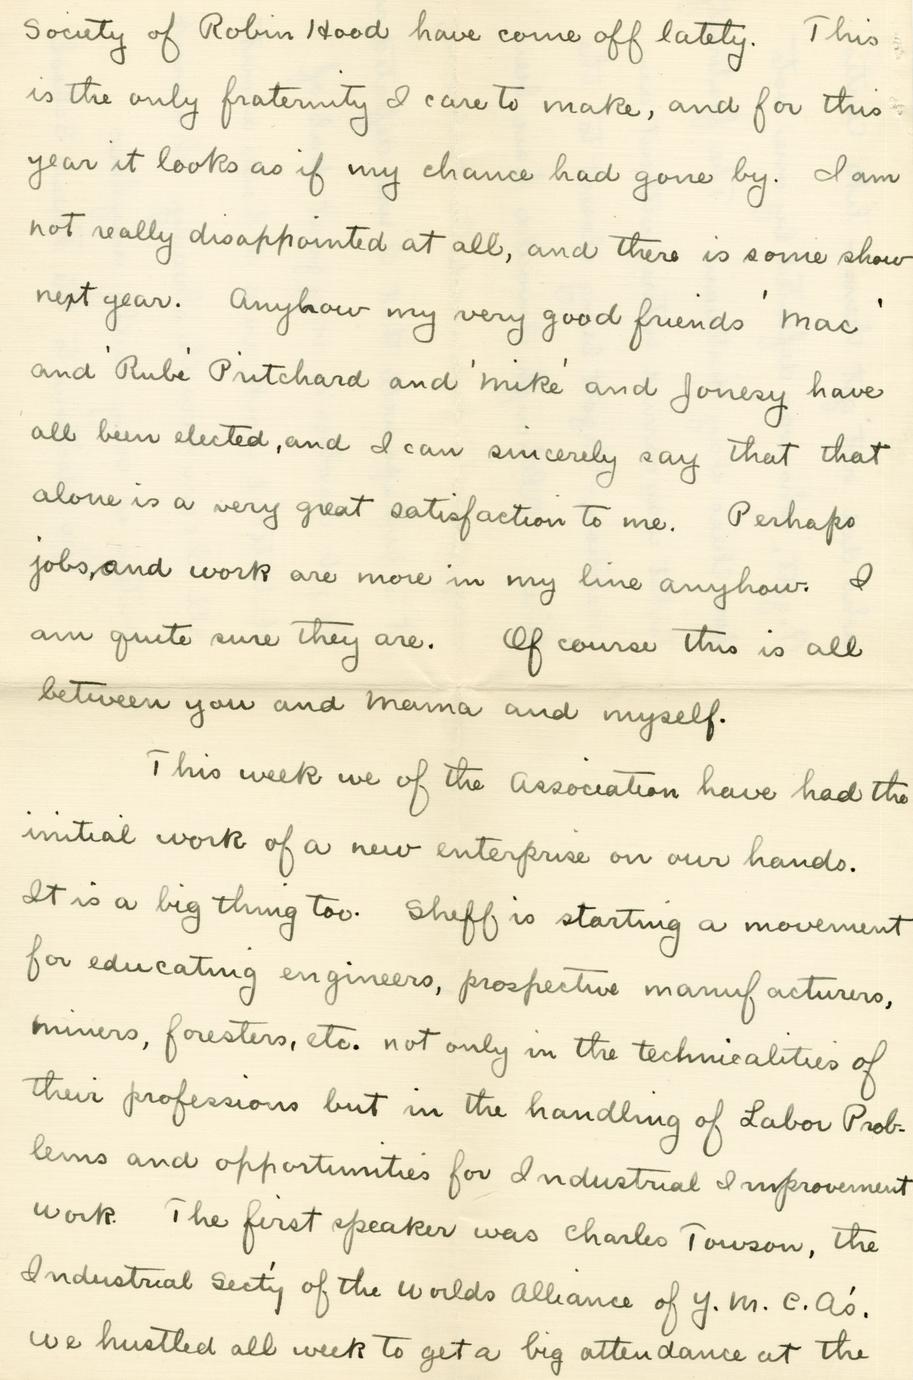 Society of Robin Hood have come off lately. This
is the only fraternity I care to make, and for this
year it looks as if my chance had gone by. I am
not really disappointed at all, and there is some show
next year. Anyhow my very good friends 'Mac'
and 'Rube' Pritchard and 'Mike' and Jonesy have
all been elected, and I can sincerely say that that
alone is a very great satisfaction to me. Perhaps
jobs, and work are more in my line anyhow. I
am quite sure they are. Of course this is all
between you and Mama and myself.
This week we of the Association have had the
initial work of a new enterprise on our hands.
It is a big thing too. Sheff is starting a movement
for educating engineers, prospective manufacturers,
miners, foresters, etc. not only in the technicalities of
their professions but in the handling of Labor Prob-
lems and opportunities for Industrial Improvement
work. The first speaker was Charles Towson, the
Industrial Sect'y of the Worlds Alliance of Y. M. C. A's.
We hustled all week to get a big attendance at the